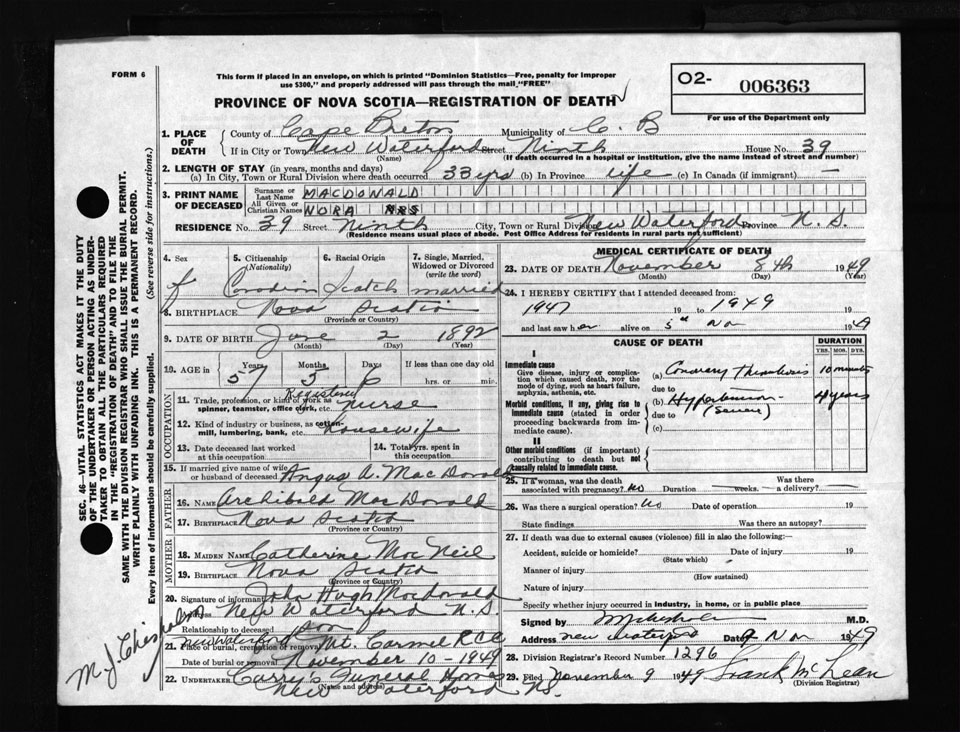 FORM 6
This form if placed in an envelope, on which is printed "Dominion Statistics—Free, penalty for improper
use $300," and properly addressed will pass through the mail "FREE"
O2- 006363
For use of the Department only
PROVINCE OF NOVA SCOTIA—REGISTRATION OF DEATH
1. PLACE OF DEATH County of Cape Breton Municipality of C. B
If in City or Town New Waterford Street Ninth House No. 39
(Name) (If death occurred in a hospital or institution, give the name instead of street and number)
2. LENGTH OF STAY (in years, months and days)
(a) In City, Town or Rural Division where death occurred 33 yrs (b) In Province life (c) In Canada (if immigrant) —
3. PRINT NAME OF DECEASED Surname or Last Name MACDONALD
All Given or Christian Names NORA MRS
RESIDENCE No. 39 Street Ninth City, Town or Rural Division New Waterford Province N. S.
(Residence means usual place of abode. Post Office Address for residents in rural parts not sufficient)
4. Sex 5. Citizenship (Nationality) 6. Racial Origin 7. Single, Married, Widowed or Divorced (write the word)
f Canadian Scotch married
8. BIRTHPLACE Nova Scotia
(Province or Country)
9. DATE OF BIRTH June 2 1892
(Month) (Day) (Year)
10. AGE in Years Months Days If less than one day old
57 5 hrs. or min.
OCCUPATION
11. Trade, profession, or kind of work as spinner, teamster, office clerk, etc. Registered nurse
12. Kind of industry or business, as cotton-mill, lumbering, bank, etc. housewife
13. Date deceased last worked at this occupation 14. Total yrs. spent in this occupation
15. If married give name of wife or husband of deceased Angus A. MacDonald
FATHER
16. NAME Archibald MacDonald
17. BIRTHPLACE Nova Scotia
(Province or Country)
MOTHER
18. MAIDEN NAME Catherine MacNeil
19. BIRTHPLACE Nova Scotia
(Province or Country)
20. Signature of informant John Hugh Macdonald
Address New Waterford N.S
Relationship to deceased son
21. Place of burial, cremation or removal New Waterford Mt. Carmel R C C
Date of burial or removal November 10-1949
22. UNDERTAKER Curry's Funeral Home
(Name and address)
New Waterford N.S.
MEDICAL CERTIFICATE OF DEATH
23. DATE OF DEATH November 8th 1949
(Month) (Day)
24. I HEREBY CERTIFY that I attended deceased from:
1947 19 to 1949 19
and last saw her alive on 5th Nov 1949
CAUSE OF DEATH DURATION
YRS. MOS. DYS.
I
Immediate cause
Give disease, injury or complication which caused death, NOT the mode of dying, such as heart failure, asphyxia, asthenia, etc.
(a) Coronary Thrombosis 10 minutes
due to
Morbid conditions, if any, giving rise to immediate cause (stated in order proceeding backwards from immediate cause).
(b) Hypertension 4 years
due to (Severe)
(c)
II
Other morbid conditions (if important) contributing to death but not causally related to immediate cause.
25. If a woman, was the death associated with pregnancy? No Duration weeks. Was there a delivery? —
26. Was there a surgical operation? No Date of operation 19
State findings Was there an autopsy?
27. If death was due to external causes (violence) fill in also the following:—
Accident, suicide or homicide? Date of injury 19
(State which)
Manner of injury
(How sustained)
Nature of injury
Specify whether injury occurred in industry, in home, or in public place
Signed by M.D.
Address New Waterford Date 9 Nov 1949
28. Division Registrar's Record Number 1296
29. Filed November 9 1949 Frank McLean
(Division Registrar)
SEC. 46—VITAL STATISTICS ACT MAKES IT THE DUTY
OF THE UNDERTAKER OR PERSON ACTING AS UNDER-
TAKER TO OBTAIN ALL THE PARTICULARS REQUIRED
IN THE "REGISTRATION OF DEATH" AND TO FILE THE
SAME WITH THE DIVISION REGISTRAR WHO SHALL ISSUE THE BURIAL PERMIT.
WRITE PLAINLY WITH UNFADING INK. THIS IS A PERMANENT RECORD.
Every item of information should be carefully supplied. (See reverse side for instructions.)
M. J. Chisholm